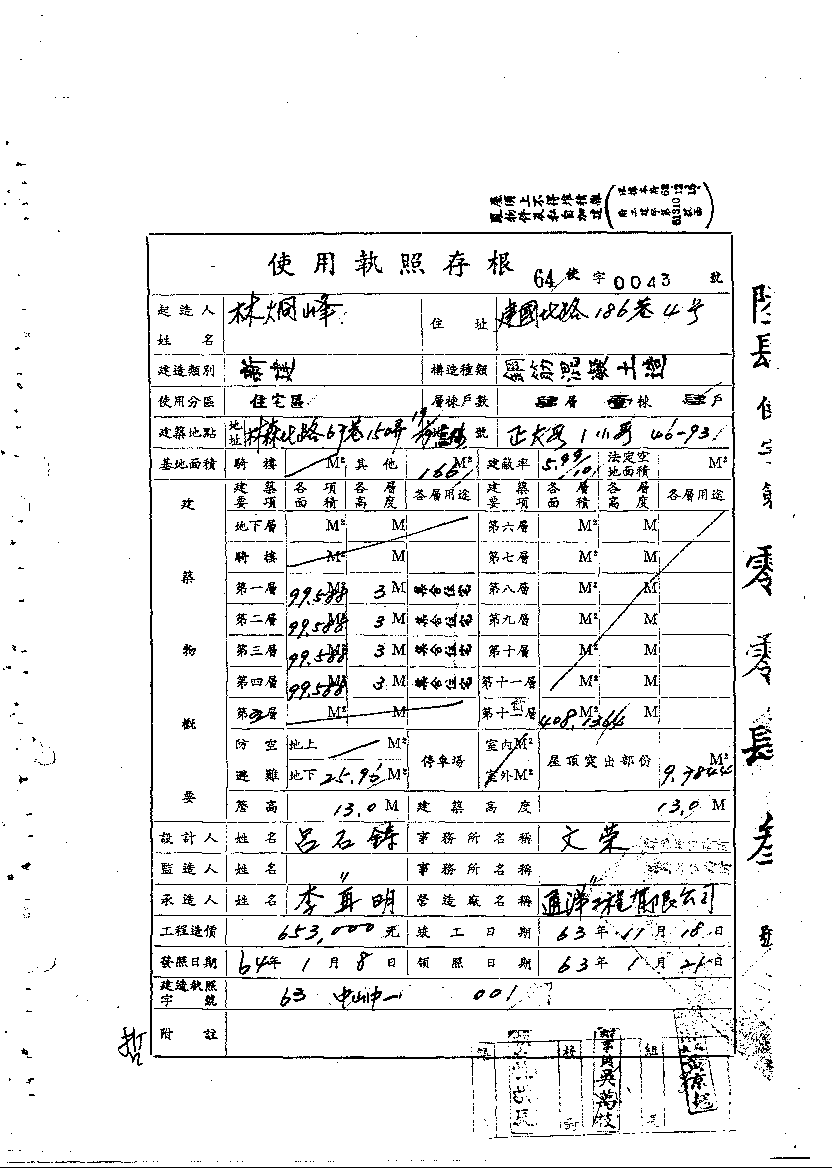 屋頂上不得堆積雜
物件及私自加
使用執照存根
64使字0043號
起造人姓名 林烱峰 住址 建國北路186巷4号
建造類別 構造種類 鋼筋混凝土造
使用分區 住宅區 層棟戶數 肆層 壹棟 戶
建築地點 地址 林森北路67巷150弄 號 正大段1小段46-93
基地面積 騎樓 M² 其他 166 M² 建蔽率 5.99/10 法定空地面積 M²
建築要項 各項面積 各層高度 各層用途 建築要項 各層面積 各層高度 各層用途
建築物概要
地下層 M² M 第六層 M² M
騎樓 M² M 第七層 M² M
第一層 99.588 M² 3 M 集合住宅 第八層 M² M
第二層 99.588 M² 3 M 集合住宅 第九層 M² M
第三層 99.588 M² 3 M 集合住宅 第十層 M² M
第四層 99.588 M² 3 M 集合住宅 第十一層 M² M
M² M 408.1364
防空避難 地上 M² 停車場 室內M² 屋頂突出部份 M²
地下 25.96 M² 室外M² 9.7844
簷高 13.0 M 建築高度 13.0 M
設計人 姓名 呂石鑄 事務所名稱 文榮
監造人 姓名 〃 事務所名稱 〃
承造人 姓名 李再明 營造廠名稱 通洋工程有限公司
工程造價 653,000元 竣工日期 63年11月18日
發照日期 64年1月8日 領照日期 63年1月21日
建造執照字號 63 中山中一 001
附註
哲
零
零
長
叁
號